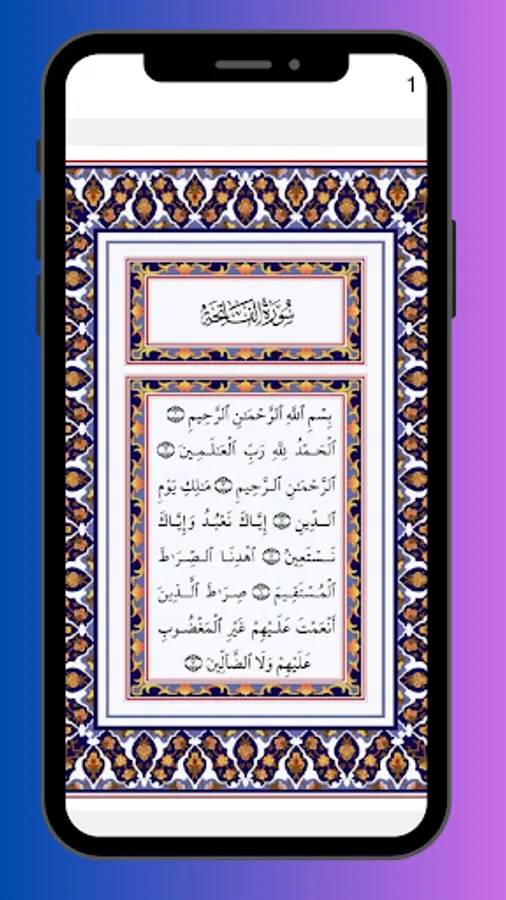 1
سُورَةُ الفَاتِحَةِ
بِسْمِ ٱللَّهِ ٱلرَّحْمَـٰنِ ٱلرَّحِيمِ ۝
ٱلْحَمْدُ لِلَّهِ رَبِّ ٱلْعَـٰلَمِينَ ۝
ٱلرَّحْمَـٰنِ ٱلرَّحِيمِ ۝ مَـٰلِكِ يَوْمِ
ٱلدِّينِ ۝ إِيَّاكَ نَعْبُدُ وَإِيَّاكَ
نَسْتَعِينُ ۝ ٱهْدِنَا ٱلصِّرَٰطَ
ٱلْمُسْتَقِيمَ ۝ صِرَٰطَ ٱلَّذِينَ
أَنْعَمْتَ عَلَيْهِمْ غَيْرِ ٱلْمَغْضُوبِ
عَلَيْهِمْ وَلَا ٱلضَّآلِّينَ ۝